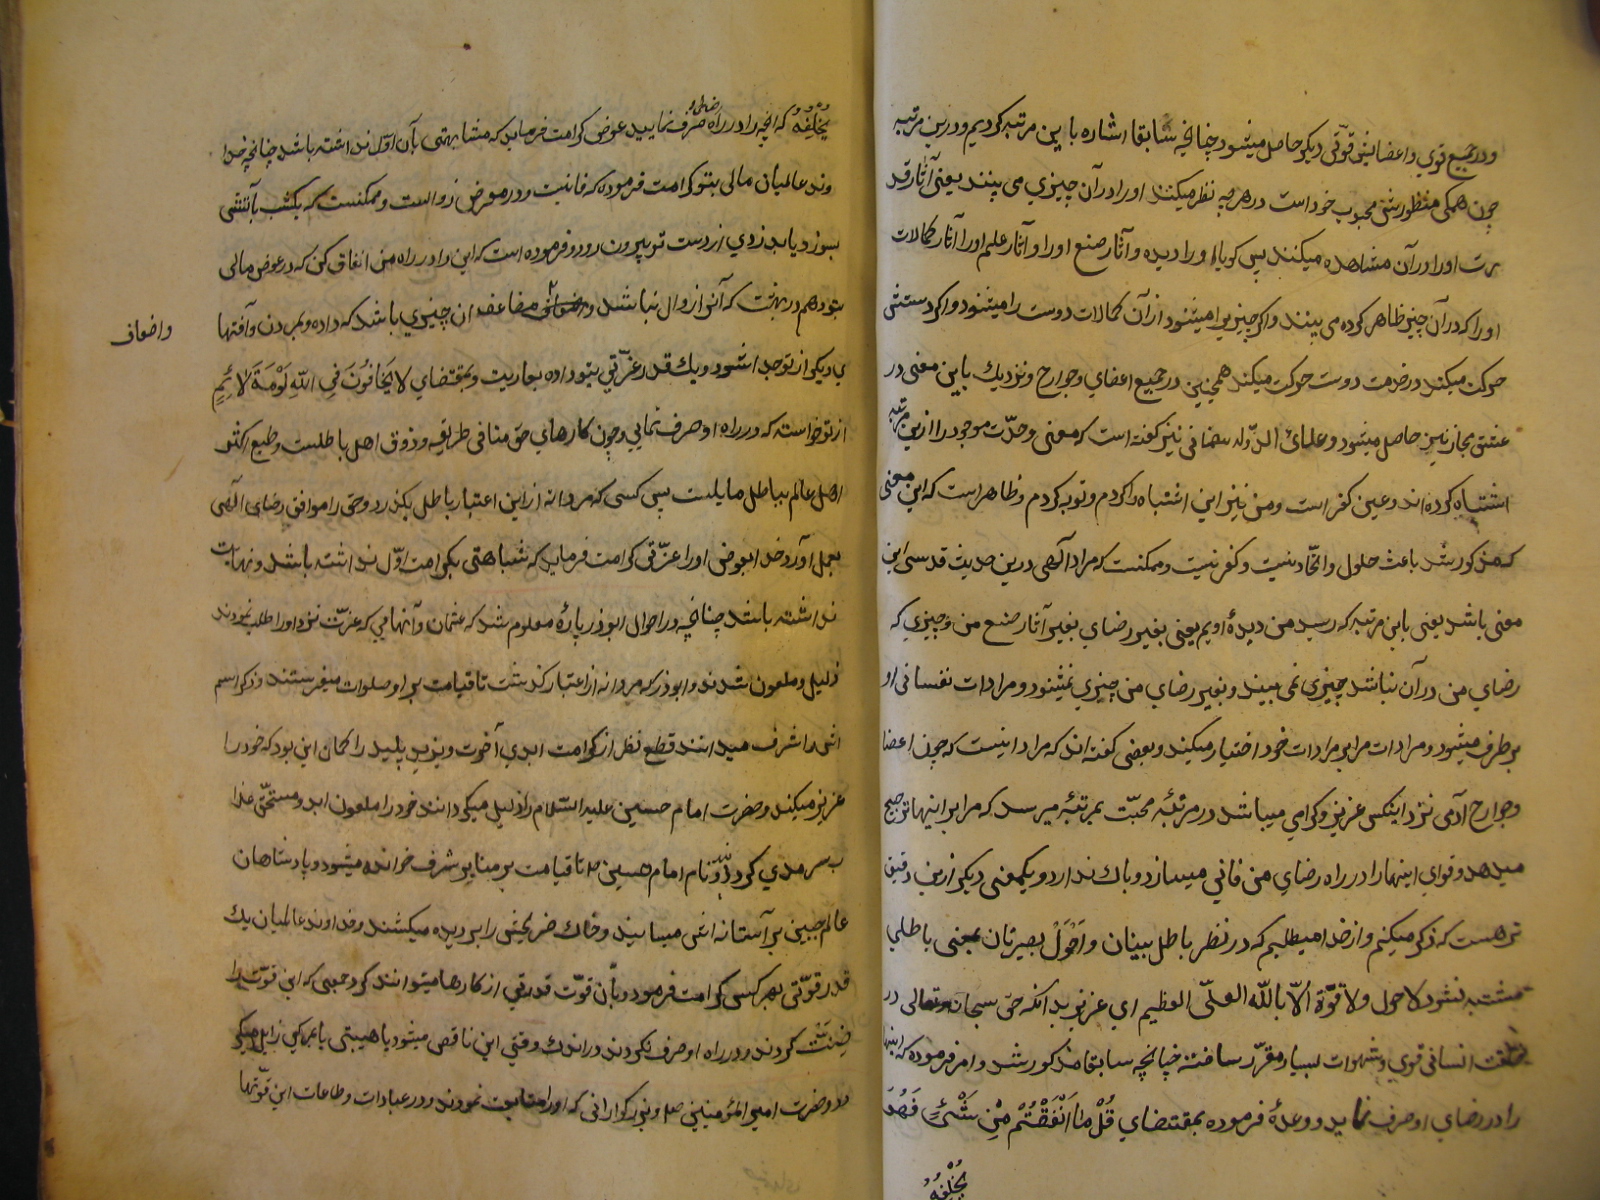 و در جمیع قوي و اعضا نیز قوّتی دیکر حاصل میشود چنانچه سابقا اشاره باین مرتبه کردیم و درین مرتبه
چون همکی منظورش محبوب خود است در هر چه نظر میکنند او را در آن چیزي می بینند یعنی آثار قد
رت او را در آن مشاهده میکنند پس کویا او را دیده و آثار صنع او را و آثار علم او را آثار کمالات
او را که در آن چیز ظاهر کرده می بینند و اکر چیزیرا میشنود از آن کمالات دوست را میشنود و اکر دستش
حرکت میکند در خدمت دوست حرکت میکند همچنین در جمیع اعضاي و جوارح و نزدیك باین معنی در
عشق مجاز نیز حاصل میشود و علماء الدّوله سمنانی نیز کفته است که معنی وحدّت موجود را ازین مرتبه
اشتباه کرده اند و عین کفر است و من نیز این اشتباه را کردم و توبه کردم و ظاهر است که این معنی
که مذکور شد باعث حلول و اتّحاد نیست و کفر نیست و ممکنست که مراد الٓهی درین حدیث قدسی این
معنی باشد یعنی باین مرتبه که رسید من دیدهٔ اویم یعنی بغیر رضاي بغیر آثار صنع من و چیزي که
رضاي من در آن نباشد چیزي نمی بیند و بغیر رضاي من چیزي نمیشنود و مرادات نفسانی او
بر طرف میشود و مرادات مرا بر مرادات خود اختیار میکند و بعضی کفته اند که مراد اینست که چون اعضا
و جوارح آدمی نزد اینکس عزیز و کرامی میباشد در مرتبهٔ محبّت بمرتبهٔ میرسد که مرا بر اینها ترجیح
میدهد و قواي اینها را در راه رضاي من فانی میسازد و باك ندارد و یکمعنی دیکر ازین دقیق
تر هست که ذکر میکنم و از خدا میطلبم که در نظر باطل بینان و اَحْوَلْ بصیرتان بمعنی باطلي
مشتبه نشود لا حول و لا قوّة الّا باللّه العلّی العظیم اي عزیز بدانکه حق سبحانه و تعالی در
خلقت انسانی قوي و شهوات بسیار مقرّر ساخته چنانچه سابقا مذکور شد و امر فرموده که اینها
را در رضاي او صرف نماید و وعدهٔ فرموده بمقتضاي قُلْ ما اَنْفَقْتُمْ مِنْ شَیْءٍ فَهُوَ
یُخْلِفُهُ
یُخْلِفُهُ که آنچه را در راه خدا صرف نمایید عوض کرامت فرماید که مشابهتی بآن اوّل نداشته باشد چنانچه خدا
وند عالمیان مالی بتو کرامت فرموده که فانیست و در معرض زوالست و ممکنست که بکشب بآتشی
بسوزد یا بدزدي از دست تو بیرون رود و فرموده است که این را در راه من انفاق کن که در عوض مالی
بتو دهم در بهشت که آنرا زوال نباشد و مضاعف آن چیزي باشد که داده و بمردن و آفتها
و اضعاف
ي دیکر از تو جدا نشود و یك قدر عزّتي بتو داده بعاریت و بمقتضاي لا یَخافُونَ فِی اللّهِ لَوْمَةَ لائِمٍ
از تو خواسته که در راه او صرف نمایی و چون کارهاي حق منافی طریقه و ذوق اهل باطلست و طبع اکثر
اهل عالم بباطل مایلست پس کسی که مردانه از این اعتبار باطل بکذرد و حق را موافق رضاي الٓهی
بعمل آورد خدا بعوض او را عزّتی کرامت فرماید که شباهتی بکرامت اوّل نداشته باشد و نهایت
نداشته باشد چنانچه در احوال ابوذر پارهٔ معلوم شد که عثمان و آنهایي که عزّت نزد او را طلب نمودند
ذلیل و ملعون شدند و ابوذر که مردانه از اعتبار کذشت تا قیامت بر او صلوات میفرستند و ذکر اسم
اش را شرف میدانند قطع نظر از کرامت ابدي آخرت و یزید پلید را کمان این بود که خود را
عزیز میکند و حضرت امام حسین علیه السّلام را ذلیل میکرداند خود را ملعون ابد و مستحقّ عذا
ب سرمدي کردانید و نام امام حسین تا قیامت بر منابر شرف خوانده میشود و پادشاهان
عالم جبین بر آستانه اش میسایند و خاك ضریحش را بر دیده میکشند و خداوند عالمیان یك
قدر قوّتی بهر کسی کرامت فرموده و بآن قوّت قدرتي از کارها میتوانند کرد جمعی که این قوّت را
کردند و در راه او صرف نکردند در اندك وقتي این ناقص میشود یا هیبتی یا بمرکي زایل میکر
دد و حضرت امیر المؤمنین و بزرکوارانی که او را متابعت نمودند و در عبادات و طاعات این قوّتها